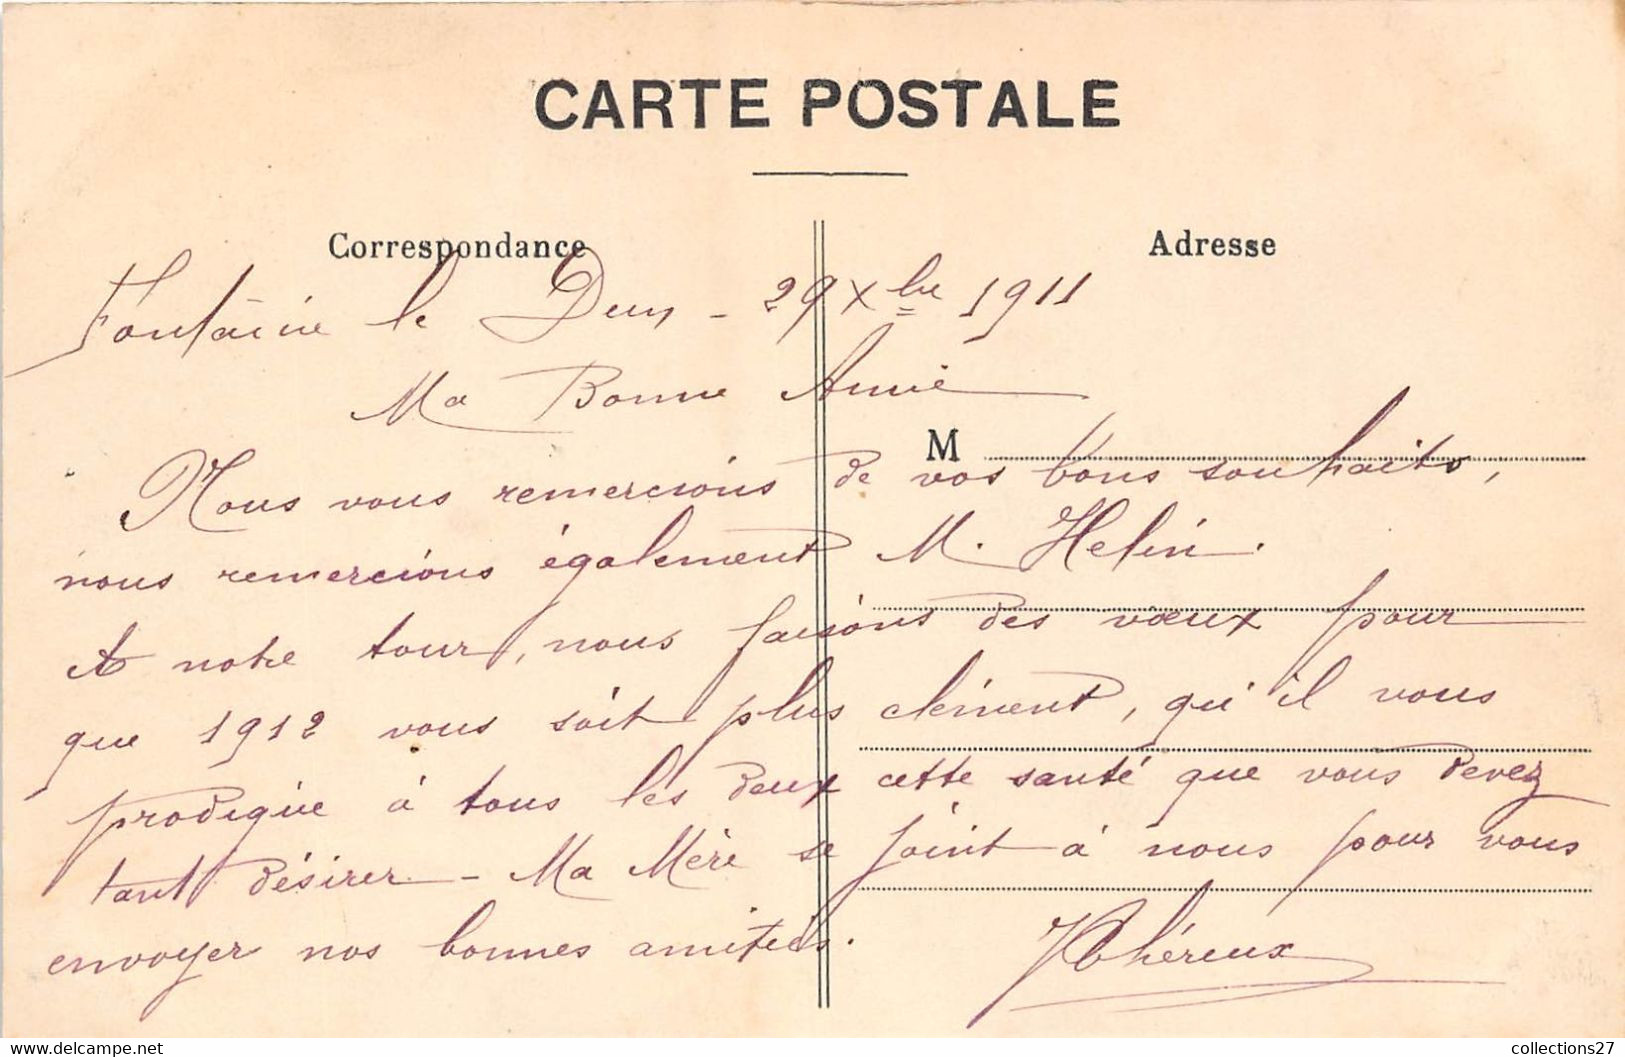 CARTE POSTALE
Correspondance
Adresse
Fontaine le Dun - 29 Xbre 1911
Ma Bonne Amie
M
Nous vous remercions de vos bons souhaits,
nous remercions également M. Helin.
A notre tour, nous faisons des vœux pour
que 1912 vous soit plus clément, qu'il vous
prodigue à tous les deux cette santé que vous devez
tant désirer - Ma Mère se joint à nous pour vous
envoyer nos bonnes amitiés.
delcampe.net
collections27